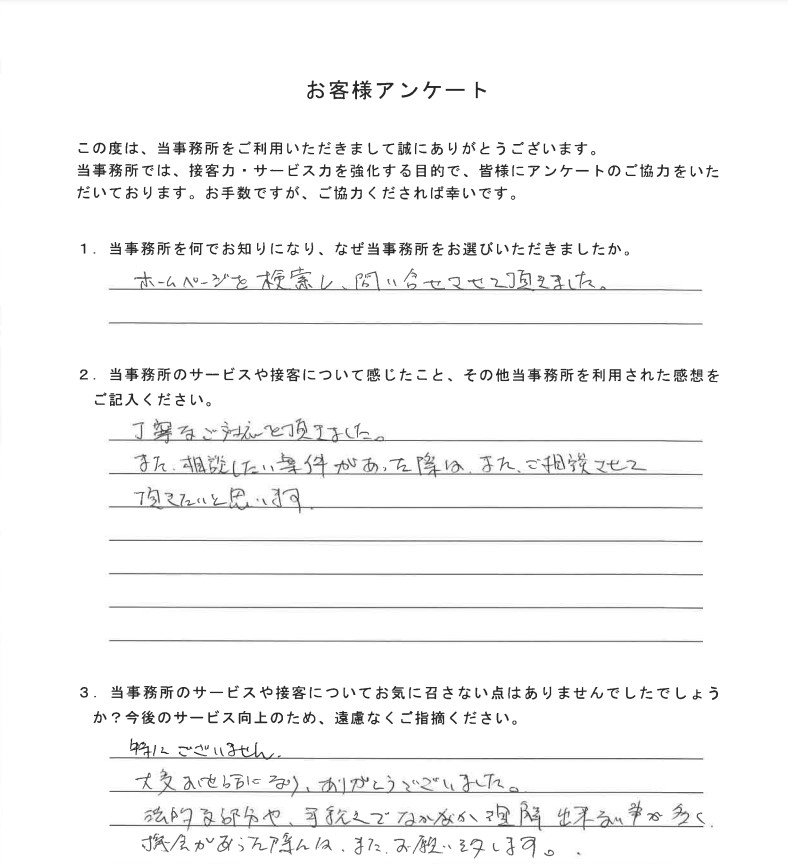 お客様アンケート
この度は、当事務所をご利用いただきまして誠にありがとうございます。
当事務所では、接客力・サービス力を強化する目的で、皆様にアンケートのご協力をいた
だいております。お手数ですが、ご協力くだされば幸いです。
１．当事務所を何でお知りになり、なぜ当事務所をお選びいただきましたか。
ホームページを検索し、問い合せさせて頂きました。
２．当事務所のサービスや接客について感じたこと、その他当事務所を利用された感想を
ご記入ください。
丁寧なご対応を頂きました。
また、相談したい案件があった際は、また、ご相談させて
頂きたいと思います。
３．当事務所のサービスや接客についてお気に召さない点はありませんでしたでしょう
か？今後のサービス向上のため、遠慮なくご指摘ください。
特にございません。
大変お世話になり、ありがとうございました。
法的な部分や、手続きでなかなか理解出来ない事が多く、
機会があった際には、また、お願い致します。